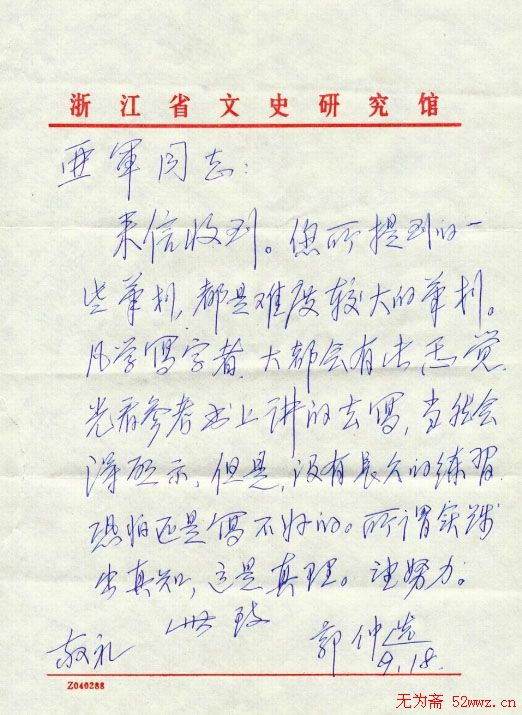 浙江省文史研究馆
亚軍同志：
来信收到。您所提到的一
些筆劃，都是难度较大的筆划。
凡学寫字者，大都会有此感觉。
光看参考书上讲的去寫，当然会
得啟示，但是，没有長久的练習
恐怕还是寫不好的。所谓实践
出真知，这是真理。请努力。
此致
敬礼
郭仲选
9.18.
Z040288
无为斋 52wwz.cn